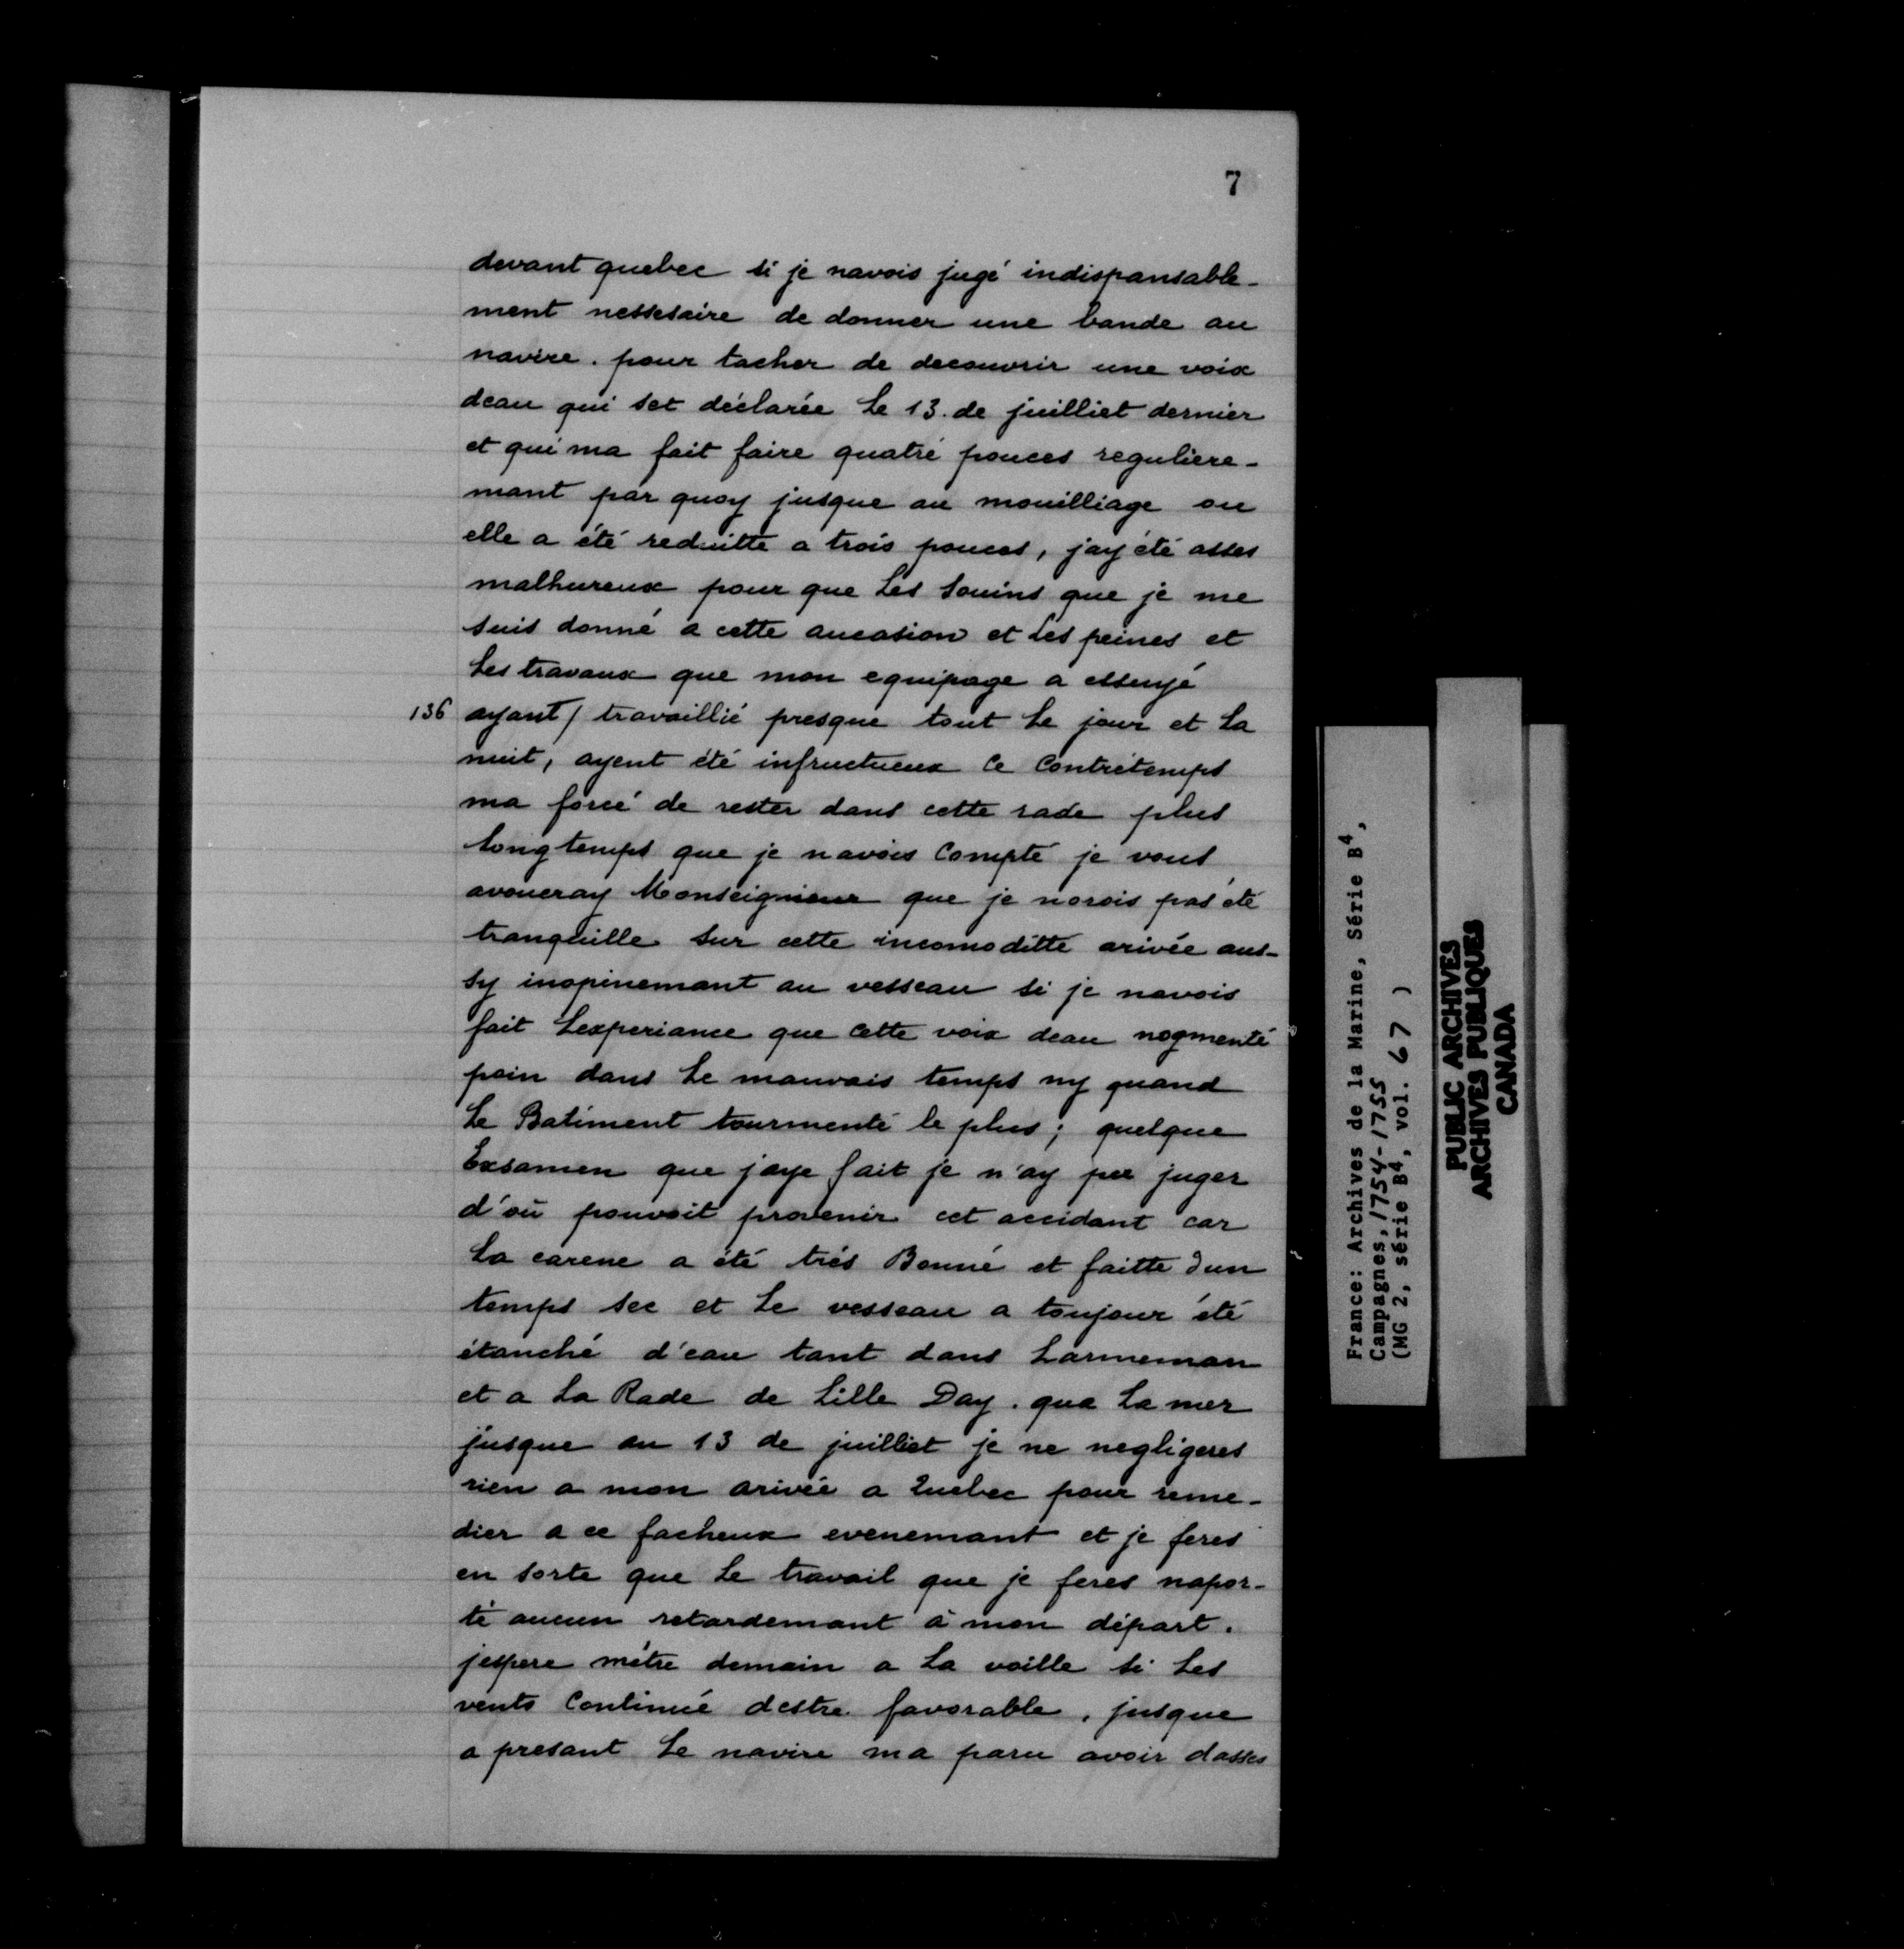 7
devant quebec si je navois jugé indispansable-
ment nessesaire de donner une bande au
navire. pour tacher de decouvrir une voix
deau qui set déclarée Le 13. de juilliet dernier
et qui ma fait faire quatré pouces reguliere-
mant par quoy jusque au mouilliage ou
elle a été reduitte a trois pouces, jay été asses
malhureux pour que Les Souins que je me
suis donné a cette aucasion et Les peines et
Les travaux que mon equipage a essuyé
136 ayant / travaillié presque tout Le jour et La
nuit, ayent été infructueux Ce Contrétemps
ma forcé de rester dans cette rade plus
Longtemps que je navois Compté je vous
avoueray Monseignieur que je norois pas été
tranquille sur cette incomoditté arivée aus-
sy inopinemant au vesseau si je navois
fait Lexperiance que Cette voix deau nogmenté
poin dans Le mauvais temps ny quand
Le Batiment tourmenté le plus; quelque
Exsamen que jaye fait je n'ay pu juger
d'où pouvoit provenir cet accidant car
La carene a été trés Bonné et faitte dun
temps sec et Le vesseau a toujour été
étanché d'eau tant dans Larmeman
et a La Rade de Lille Day. qua La mer
jusque au 13 de juilliet je ne negligeres
rien a mon arivée a Quebec pour reme-
dier a ce facheux evenemant et je feres
en sorte que Le travail que je feres napor-
té aucun retardemant à mon départ.
jespere métre demain a La voille si Les
vents Continué destre favorable, jusque
a presant Le navire ma paru avoir dasses
France: Archives de la Marine, Série B4,
Campagnes, 1754-1755
(MG 2, série B4, vol. 67 )
PUBLIC ARCHIVES
ARCHIVES PUBLIQUES
CANADA